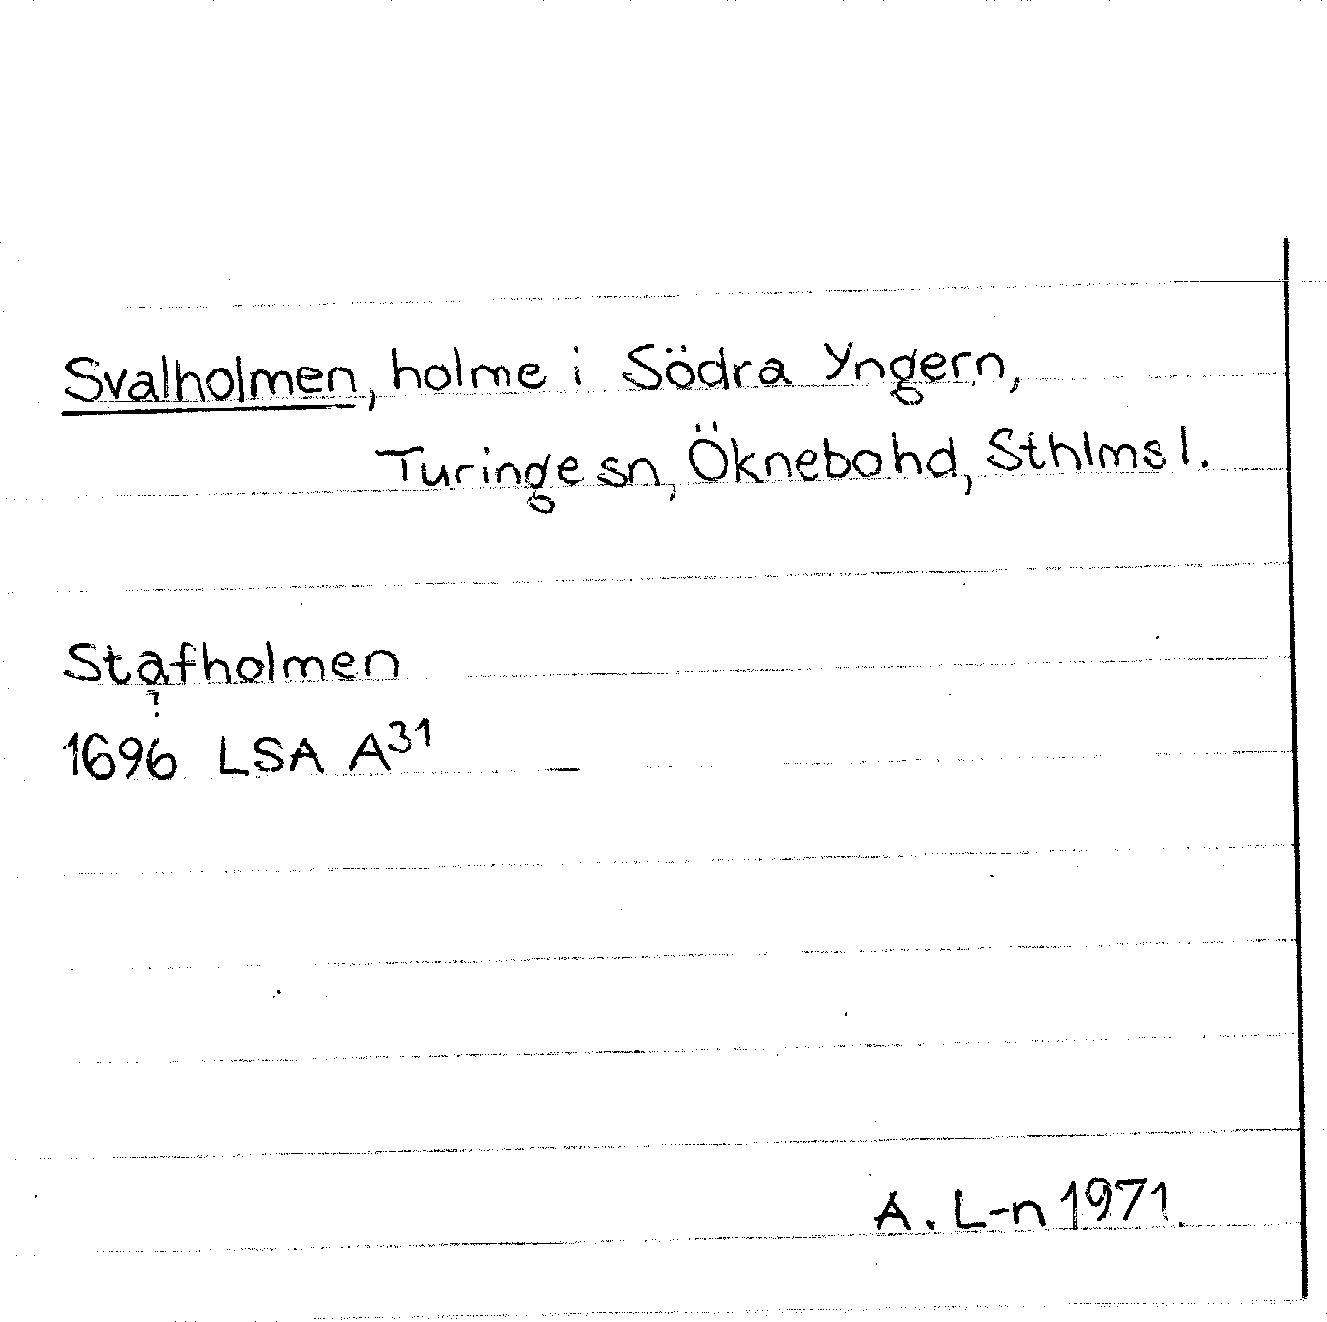 Svalholmen, holme i Södra Yngern,
Turinge sn, Öknebohd, Sthlms l.
Stafholmen
?
1696 LSA A31
A. L-n 1971.